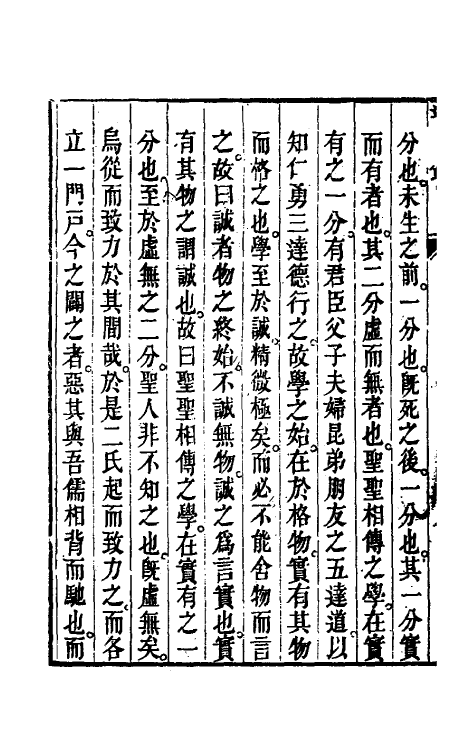 分也。未生之前。一分也。旣死之後。一分也。其一分實
而有者也。其二分虛而無者也。聖聖相傳之學。在實
有之一分。有君臣父子夫婦昆弟朋友之五達道。以
知仁勇三達德行之。故學之始。在於格物。實有其物
而格之也。學至於誠。精微極矣。而必不能舍物而言
之。故曰誠者物之終始。不誠無物。誠之爲言實也。實
有其物之謂誠也。故曰聖聖相傳之學。在實有之一
分也。至於虛無之二分。聖人非不知之也。旣虛無矣。
烏從而致力於其間哉。於是二氏起而致力之。而各
立一門戸。今之闢之者。惡其與吾儒相背而馳也。而